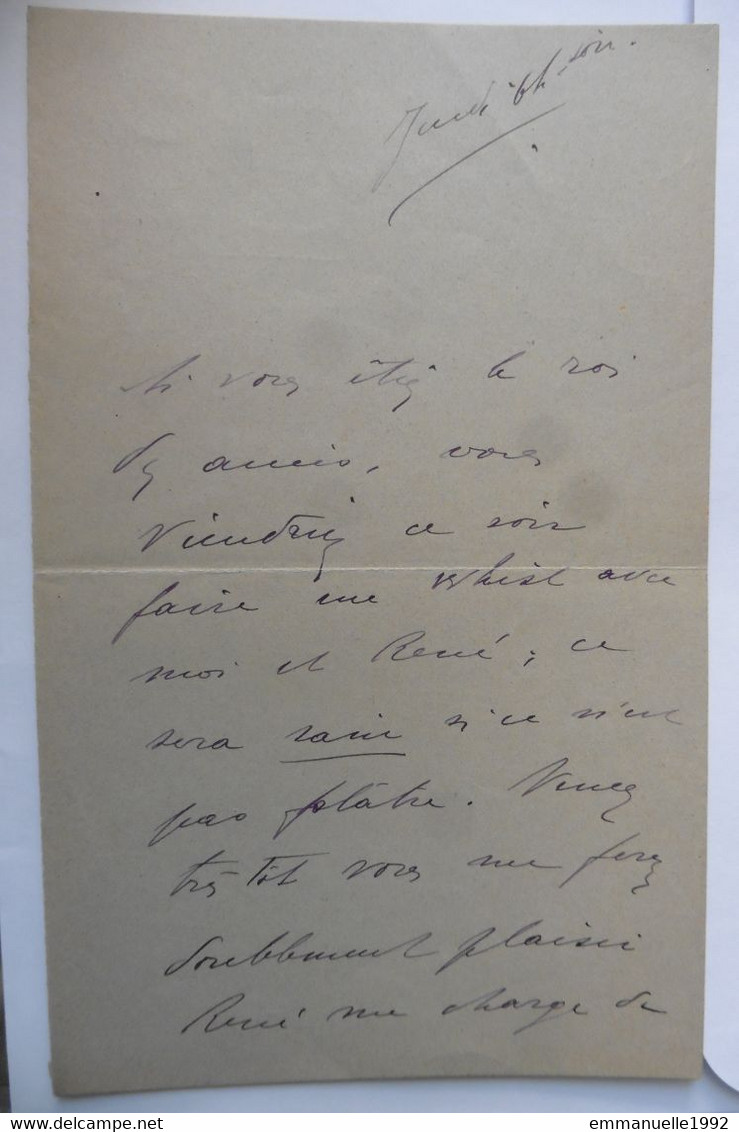 Jeudi 6h soir.
Si vous étiez le roi
des amis, vous
viendriez ce soir
faire une whist avec
moi et René ; ce
sera sain si ce n'est
pas folâtre. Venez
très tôt vous me ferez
doublement plaisir
René me charge de
delcampe.net
emmanuelle1992